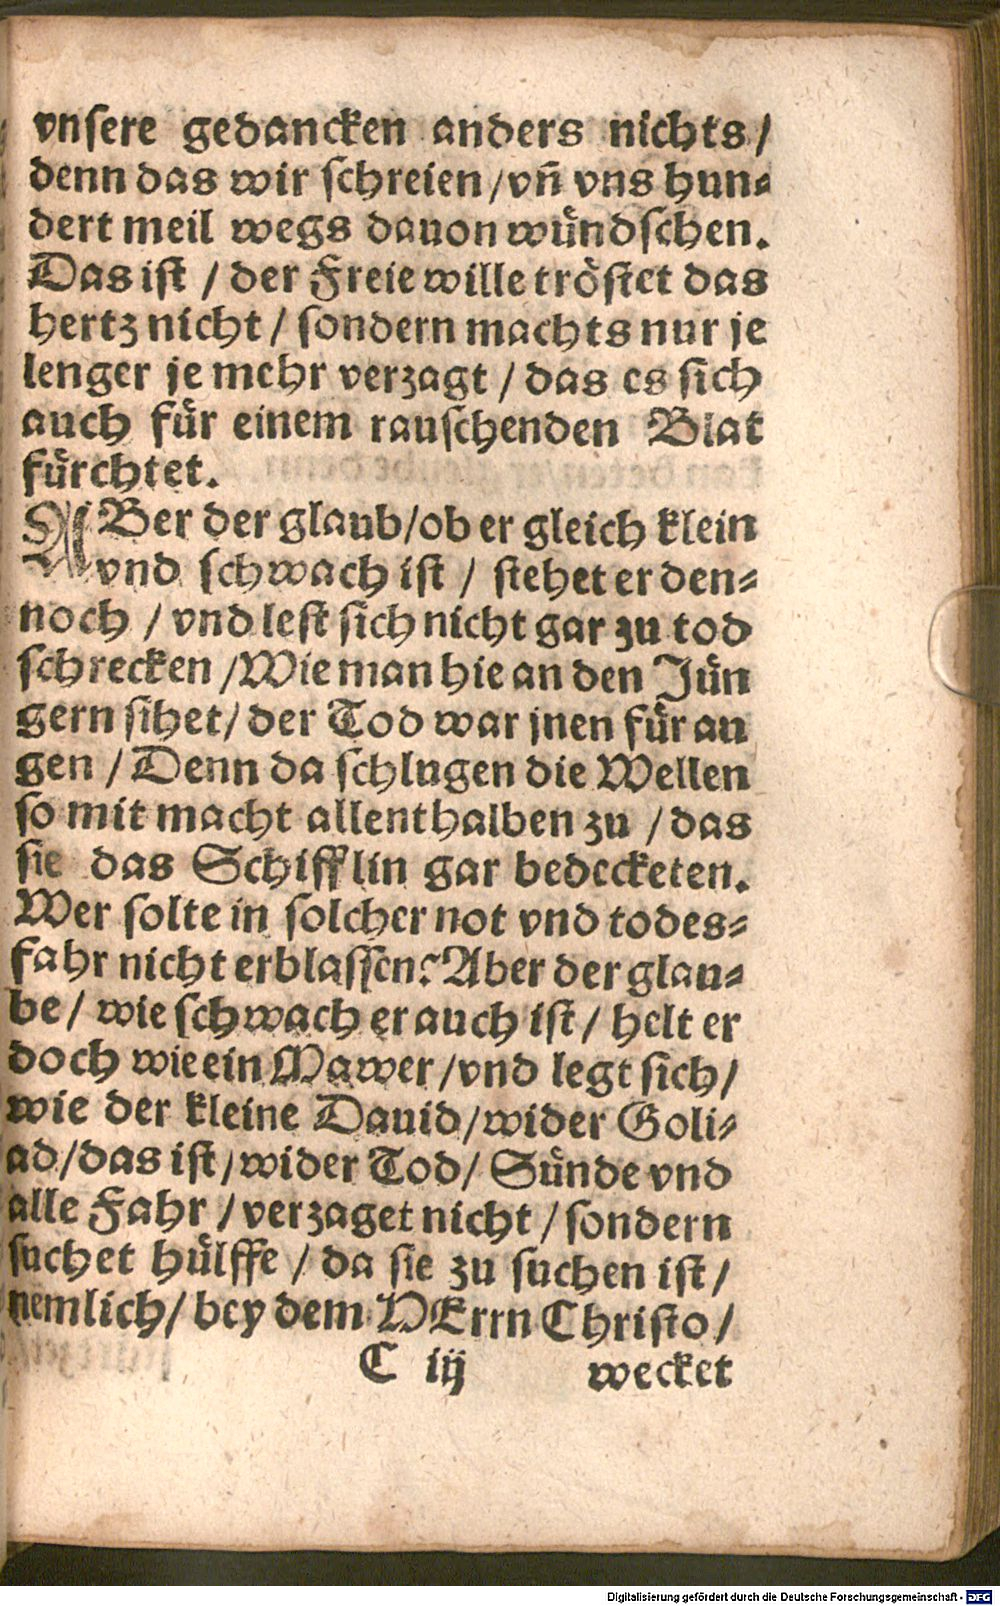 vnsere gedancken anders nichts /
denn das wir schreien / vn̄ vns hun⸗
dert meil wegs dauon wuͤndschen.
Das ist / der Freie wille troͤstet das
hertz nicht / sondern machts nur je
lenger je mehr verzagt / das es sich
auch fuͤr einem rauschenden Blat
fuͤrchtet.
ABer der glaub / ob er gleich klein
vnd schwach ist / stehet er den⸗
noch / vnd lest sich nicht gar zu tod
schrecken / Wie man hie an den Juͤn
gern sihet / der Tod war jnen fuͤr au
gen / Denn da schlugen die Wellen
so mit macht allenthalben zu / das
sie das Schifflin gar bedecketen.
Wer solte in solcher not vnd todes⸗
fahr nicht erblassen? Aber der glau⸗
be / wie schwach er auch ist / helt er
doch wie ein Mawer / vnd legt sich /
wie der kleine Dauid / wider Goli⸗
ad / das ist / wider Tod / Suͤnde vnd
alle Fahr / verzaget nicht / sondern
suchet huͤlffe / da sie zu suchen ist /
nemlich / bey dem HErrn Christo /
C iij wecket
Digitalisierung gefördert durch die Deutsche Forschungsgemeinschaft - DFG